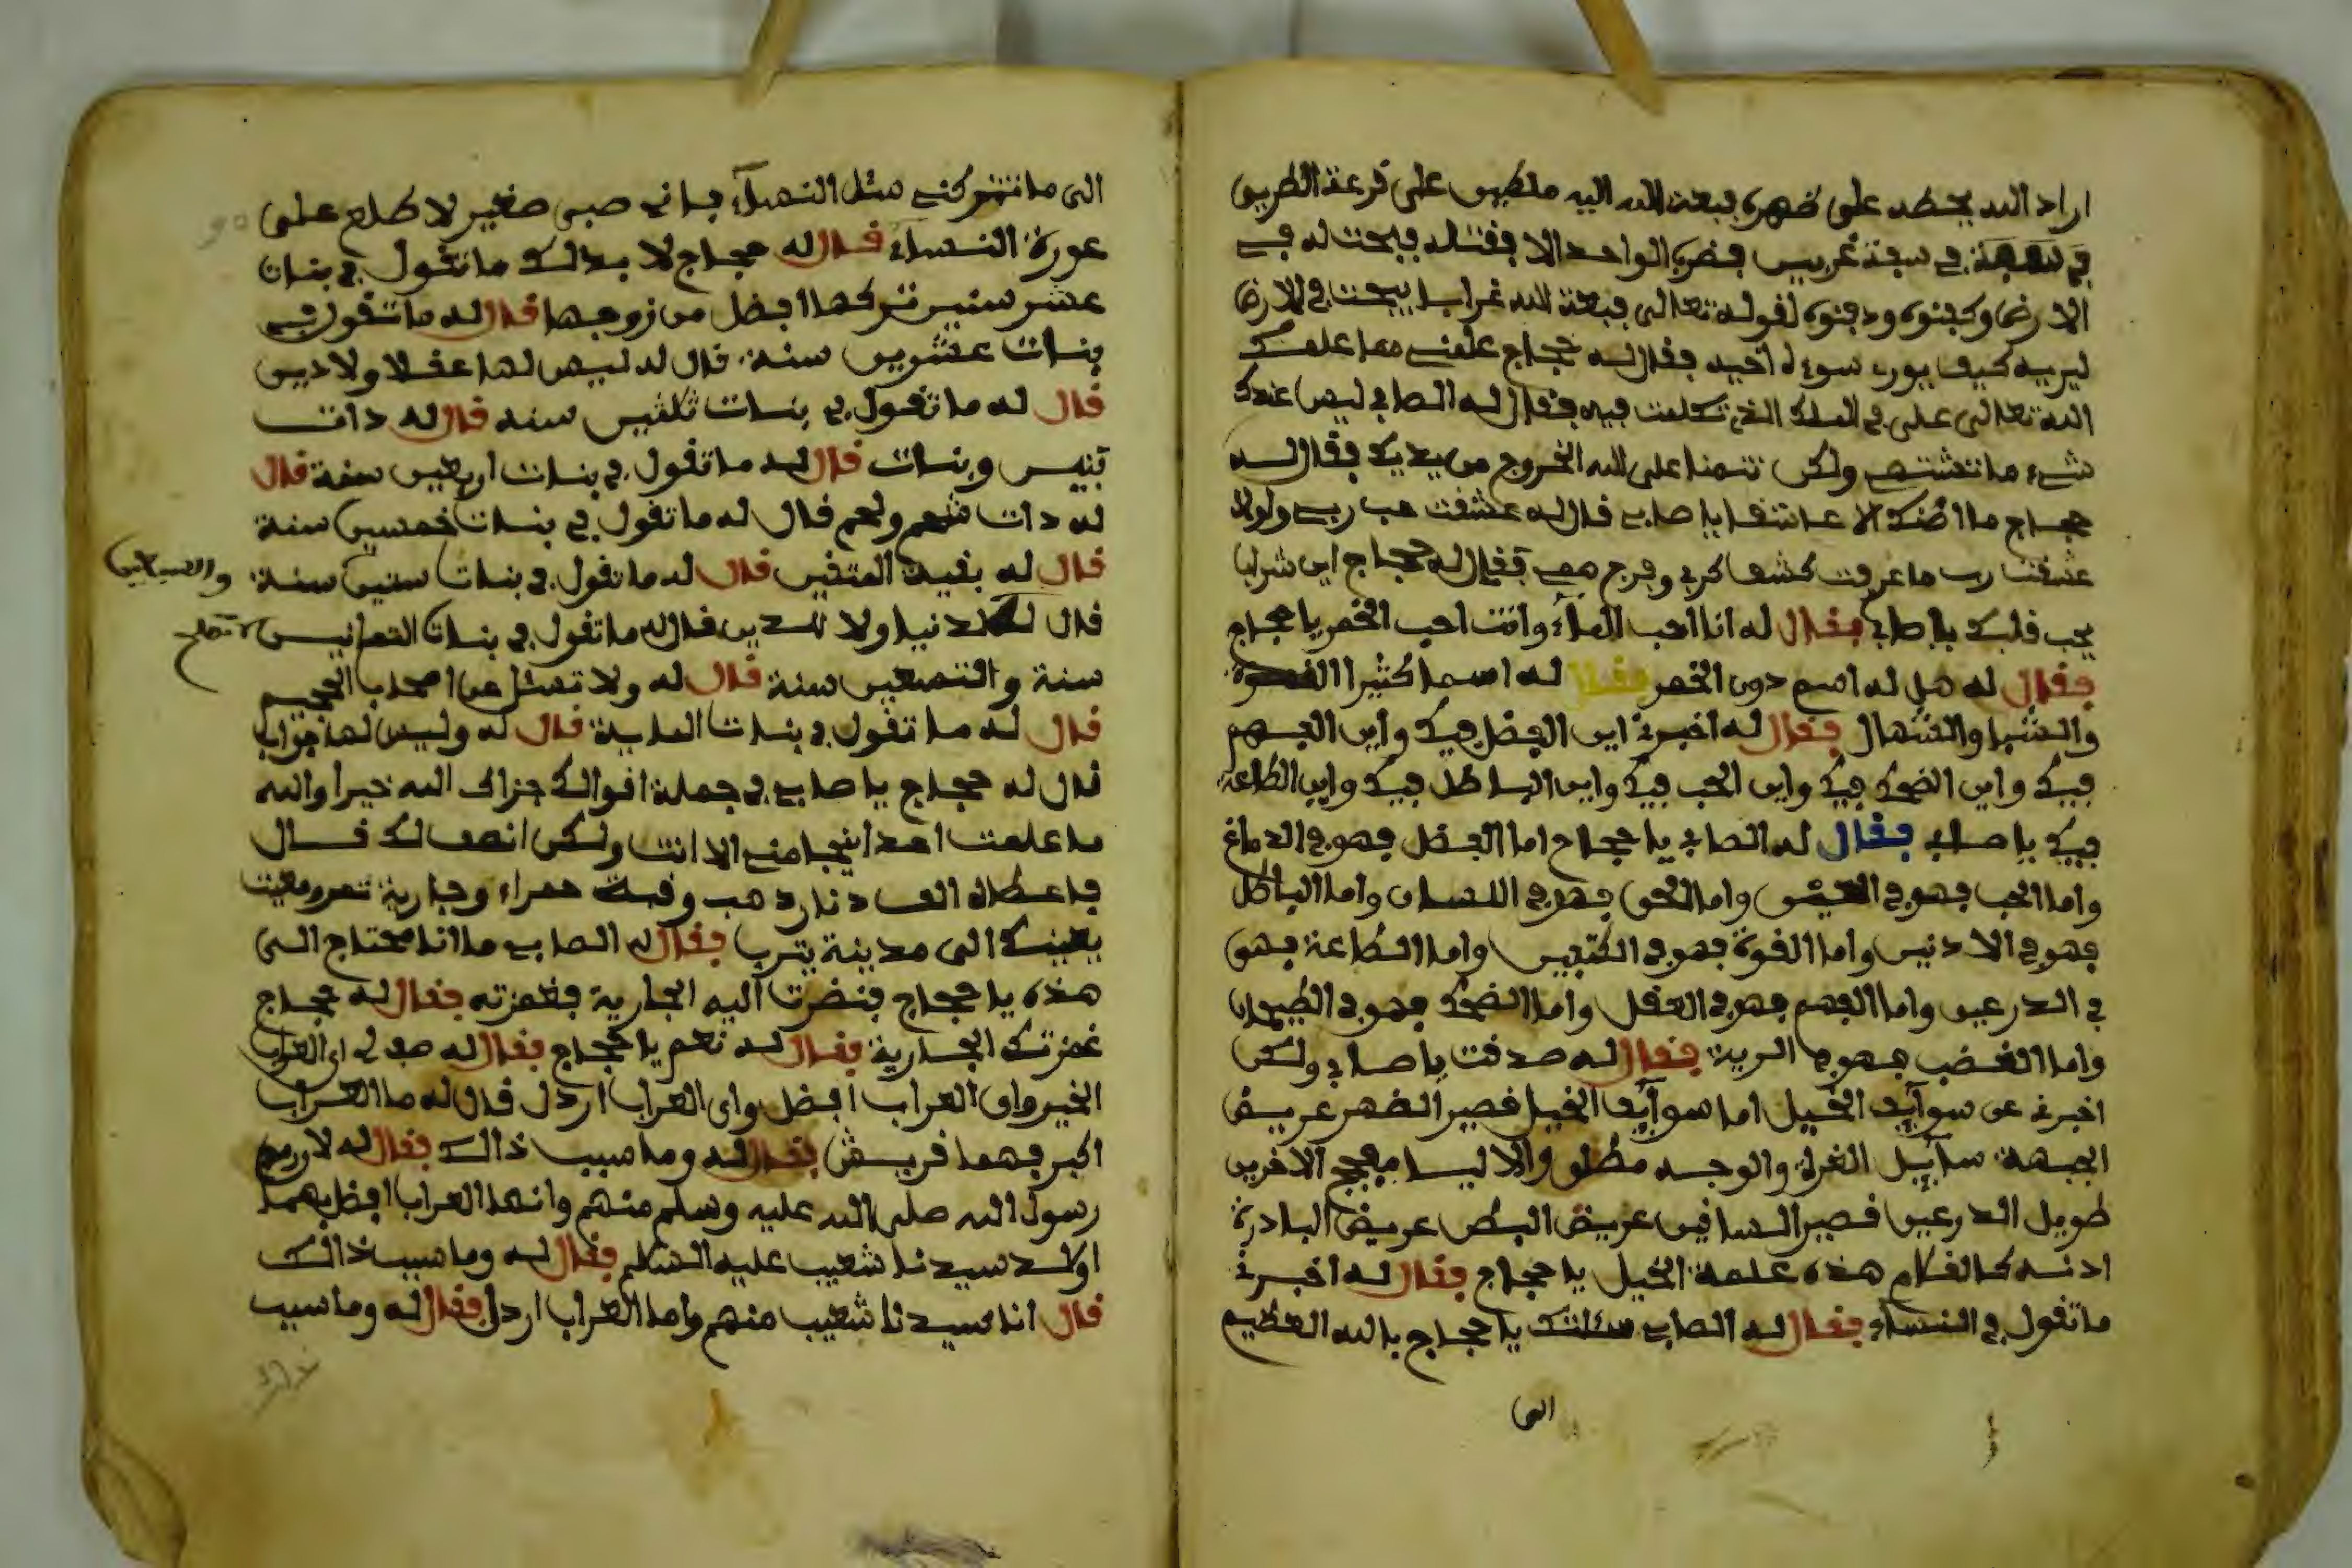 اراد الله يحطه على ظهره فبعث الله اليه ملكين على قرعة الطريق
في سفة غربيس فضرب الواحد الاخ فقتله فبحث له في
الارض وكفنوه ودفنوه لقوله تعالى فبعث الله غرابا يبحث في الارض
ليريه كيف يوري سوءة اخيه فقال له حجاج علمني مما علمك
الله تعالى على في الملك الذي تكلمت فيه فقال له الصابي ليس عندك
شيء ما تعشقه ولكن تتمنا على الله الخروج من يديك فقال له
حجاج ما اضنك الا عاشقا يا صابي قال له عشقت حب ربي ولولا
عشقت رب ما عرفت كشف كربي وفرج همي فقال له حجاج اين شراب
يحب قلبك يا صابي فقال له انا احب الماء وانت احب الخمر يا حجاج
فقال له هل له اسم دون الخمر فقال له اسما كثيرا القهوة
والشبا والشمال فقال له اخبرني اين الفضل فيك واين الفهم
فيك واين الضحك فيك واين الحب فيك واين الباطل فيك واين الطاعة
فيك يا صابي فقال له الصابي يا حجاج اما الفضل فهو في الدماغ
واما الحب فهو في واما الحق فهو في اللسان واما الباطل
فهو في الاذنين واما القوة فهو في الكتفين واما الطاعة فهو
في الذرعين واما الفهم فهو في العقل واما الضحك فهو في الطيحان
واما الغضب فهو في الرية فقال له صدقت يا صابي ولكن
اخبرني عن سوآيد الخيل اما سوآيد الخيل قصير الضهر عريض
الجبهة سآبيل الغرة والوجه مطلو والاليا مفجج الاخرين
طويل الذرعين قصير الساقين عريض البطن عريض البادرة
اذنه كالقلام هذه علمة الخيل يا حجاج فقال له اخبرني
ما تقول في النساء فقال له الصابي سئلتك يا حجاج بالله العظيم
الى
الى ما تتركني مثل النسآء فاني صبي صغير لا طلع على
عورة النساء فقال له حجاج لا بد لك ما تقول في بنات
عشر سنين تركها افضل من زوجها قال له ما تقول في
بنات عشرين سنة قال له ليس لها عقلا ولا دين
قال له ما تقول في بنات ثلثين سنه قال له ذات
بنين وبنات قال له ما تقول في بنات اربعين سنة قال
له ذات شحم ولحم قال له ما تقول في بنات خمسين سنة
قال له بقية المتقين قال له ما تقول في بنات ستين سنة والسبعين
قال له لا تصلح لدنيا ولا للدين قال له ما تقول في بنات الثمانين
سنة والتسعين سنة قال له ولا تسئل عن اصحاب الجحيم
قال له ما تقول في بنات الماية قال له وليس لها جواب
قال له حجاج يا صابي في جملة اقوالك جزاك الله خيرا والله
ما علمت احدا ينجا مني الا انت ولكن انصف لك قال
فاعطاه الف دنار ذهب وقبة حمراء وجارية تعرومعيت
بعينك الى مدينة يترب فقال له الصابي ما انا محتاج الى
هذه يا حجاج فنضرت اليه الجارية فغمزته فقال له حجاج
غمزتك الجارية فقال له نعم يا حجاج فقال له صف لي اي العراب
الخير واي العراب افضل واي العراب ارذل قال له ما العراب
اكبر فهما قريش فقال له وما سبب ذالك فقال له لان
رسول الله صلى الله عليه وسلم منهم وانهذا العراب افضل فهما
اولاد سيدنا شعيب عليه السلم فقال له وما سبب ذالك
قال انا سيدنا شعيب منهم واما العراب ارذل فقال له وما سبب